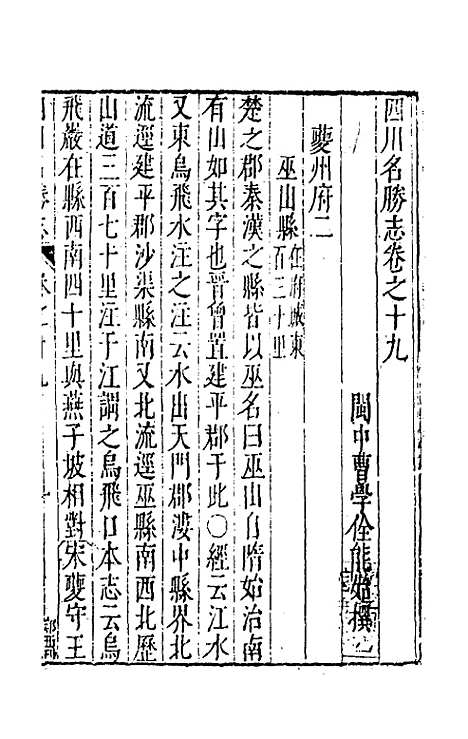 四川名勝志卷之十九
閩中曹學佺能始撰
夔州府二
巫山縣
在府城東
百三十里
楚之郡秦漢之縣皆以巫名曰巫山自隋始治南
有山如其字也晉曾置建平郡于此○經云江水
又東烏飛水注之注云水出天門郡漊中縣界北
流逕建平郡沙渠縣南又北流逕巫縣南西北歷
山道三百七十里注于江謂之烏飛口本志云烏
飛巖在縣西南四十里與燕子坡相對宋夔守王